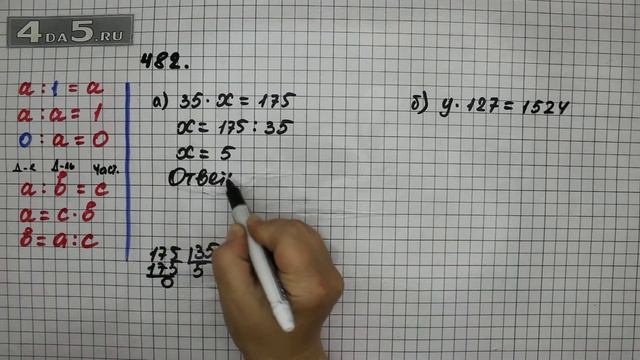 4DA5.RU
482.
a : 1 = a
a : a = 1
0 : a = 0
Д-е Д-ль Част.
a : b = c
a = c · b
b = a : c
а) 35 · x = 175
x = 175 : 35
x = 5
Отвe
175 35
175 5
0
б) y · 127 = 1524